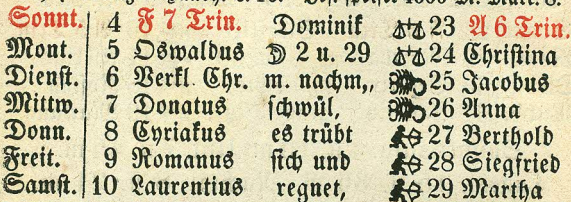 Sonnt. 4 F 7 Trin. Dominik ♎ 23 A 6 Trin.
Mont. 5 Oswaldus ☽ 2 u. 29 ♎ 24 Christina
Dienst. 6 Verkl. Chr. m. nachm., ♏ 25 Jacobus
Mittw. 7 Donatus schwül, ♏ 26 Anna
Donn. 8 Cyriakus es trübt ♐ 27 Berthold
Freit. 9 Romanus sich und ♐ 28 Siegfried
Samst. 10 Laurentius regnet, ♐ 29 Martha